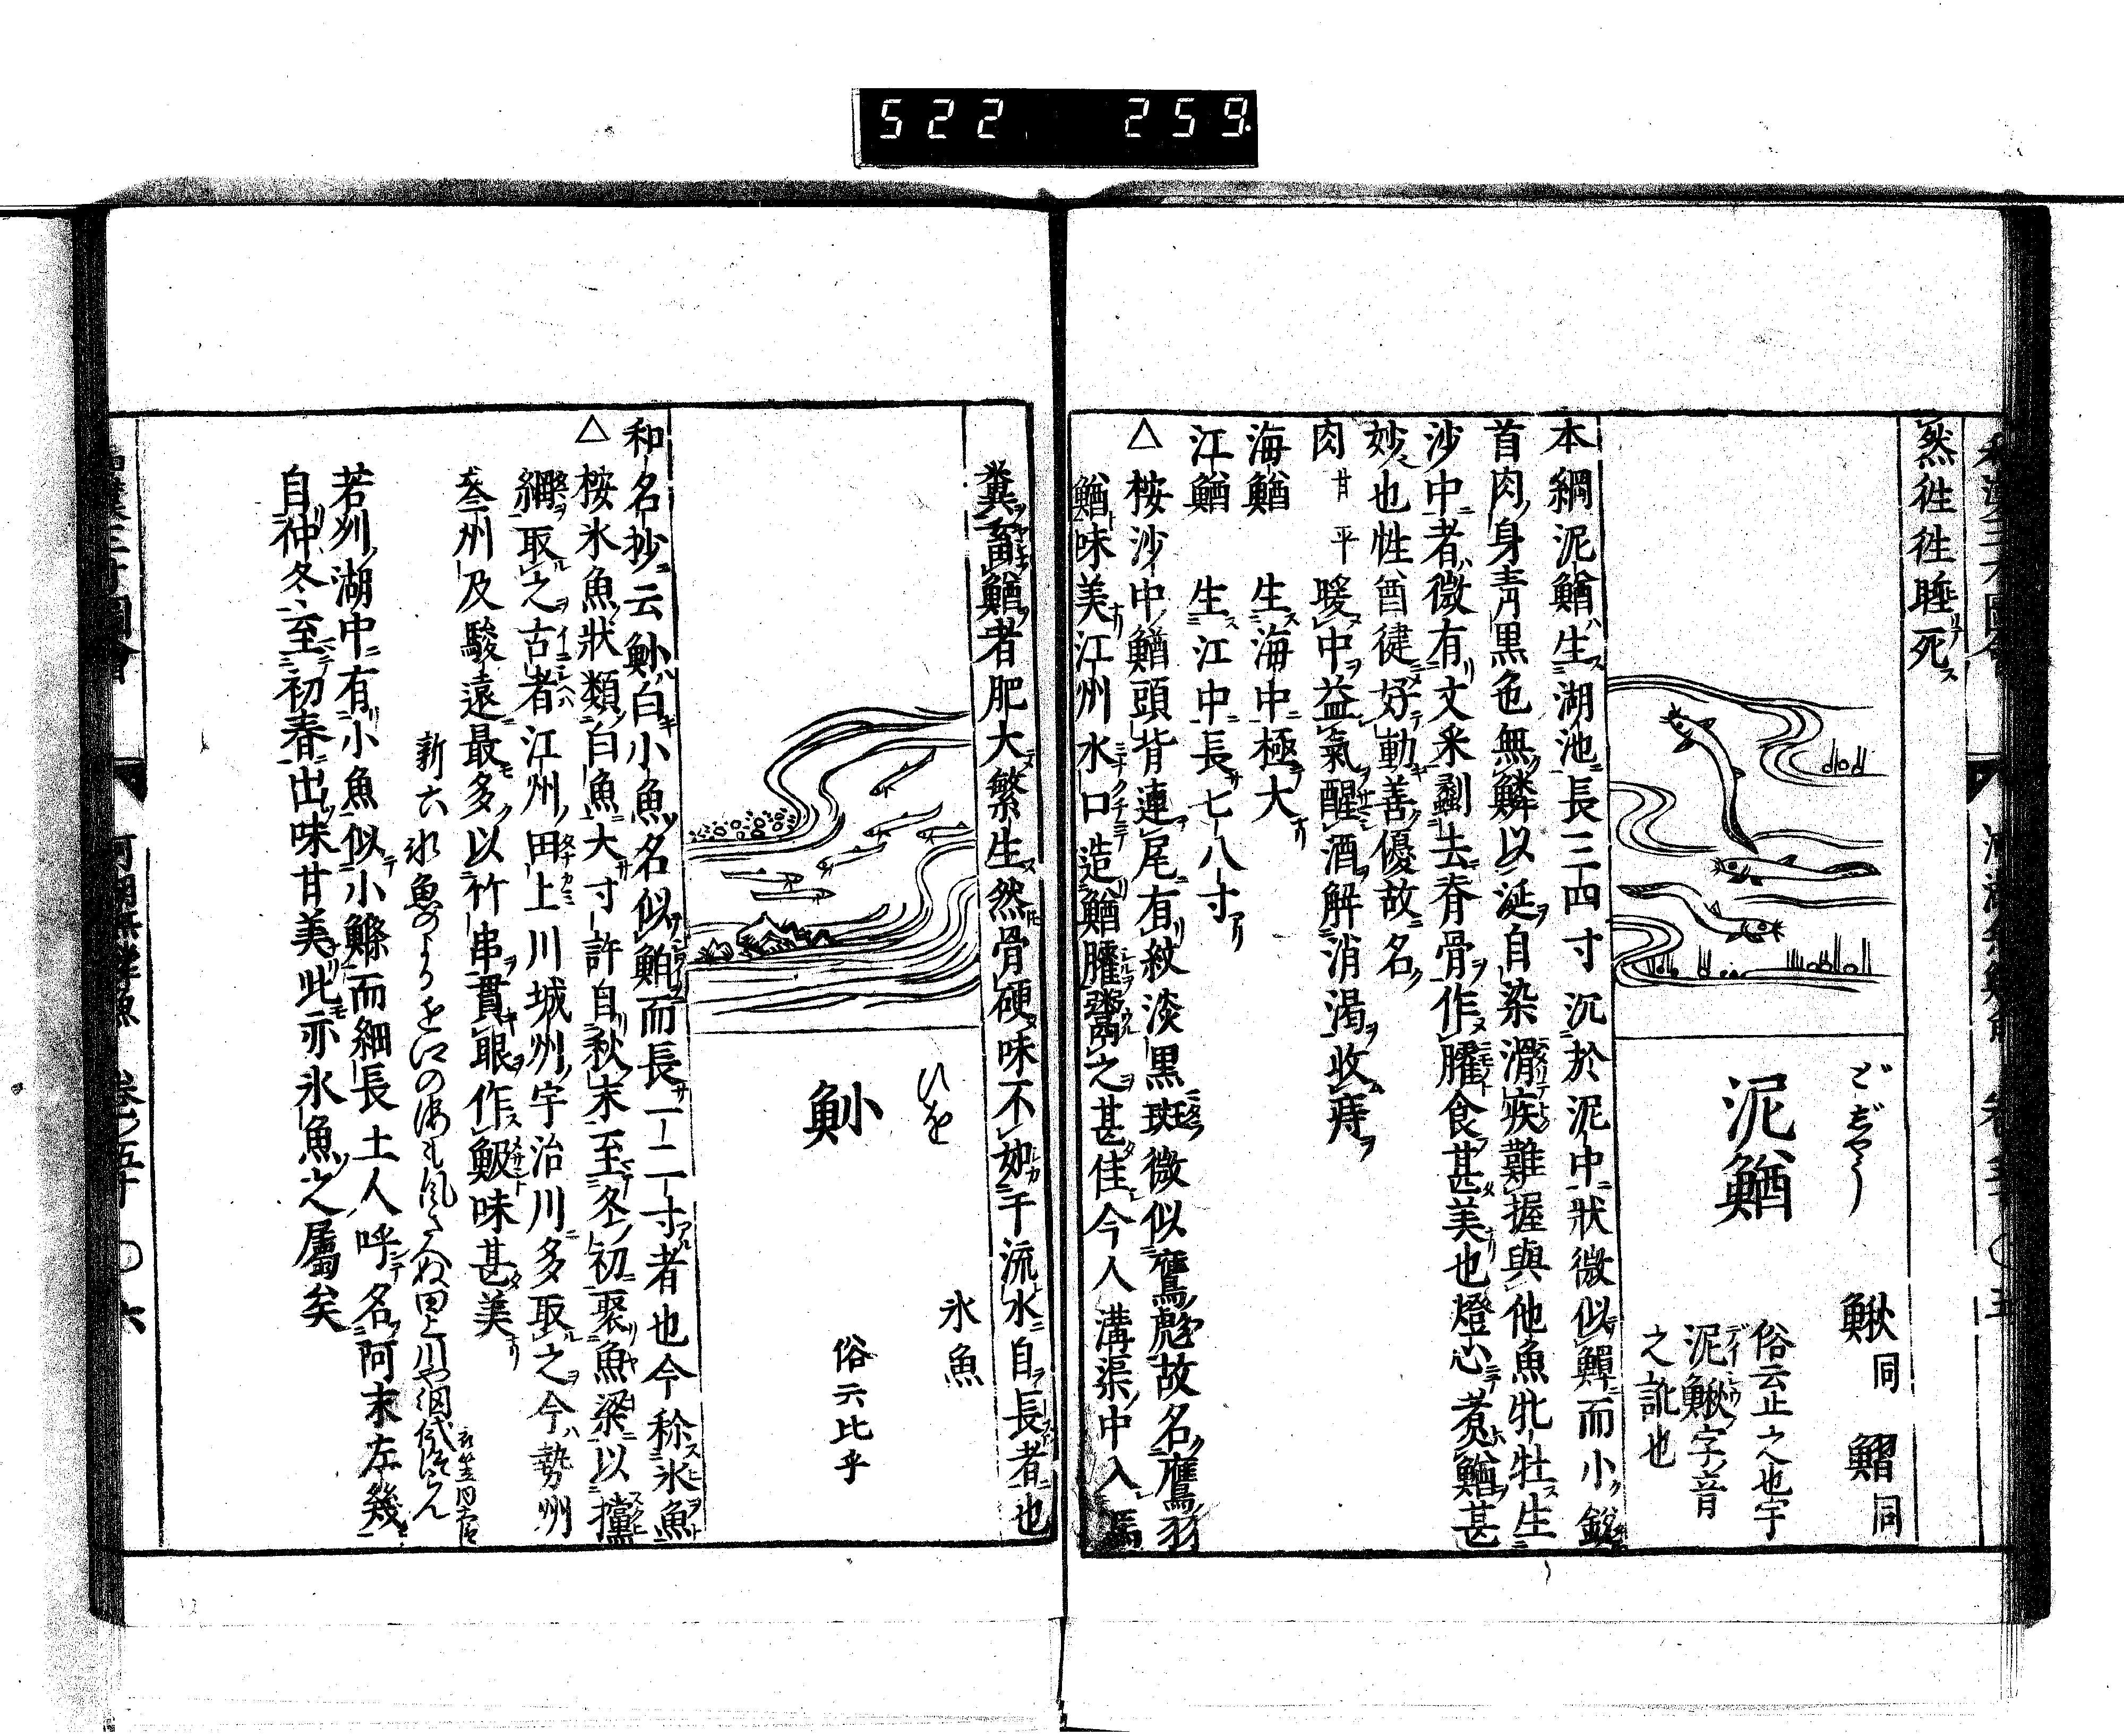 522 259
然徃徃睡死
どぢやう
泥鰌
鰍同 鰼同
俗云止之也宇
泥鰍字音
之訛也
本綱泥鰌生湖池長三四寸沉於泥中狀微似鱓而小銳
首肉身青黑色無鱗以涎自染滑疾難握與他魚牝牡生
沙中者微有文采剝去脊骨作臛食甚美也燈心煮鰌甚
妙也性酋健好動善優故名
肉甘平 暖中益氣醒酒解消渴收痔
海鰌 生海中極大
江鰌 生江中長七八寸
△按沙中鰌頭背連尾有紋淡黑斑微似鷹彪故名鷹羽
鰌味美江州水口造鰌臛鬻之甚佳今人溝渠中入馬
糞畜鰌者肥大繁生然骨硬味不如于流水自長者也
ひを
魦
氷魚
俗云比乎
和名抄云魦白小魚名似鮊而長一二寸者也今称氷魚
△按氷魚狀類白魚大寸許自秋末至冬初聚魚梁以攩
網取之古者江州田上川城州宇治川多取之今勢州
叄州及駿遠最多以竹串貫眼作鰀味甚美
新六 氷魚のよる近江の海も風さえぬ田上川や網代たるらん
若刕湖中有小魚似小鰷而細長土人呼名阿末左幾
自仲冬至初春出味甘美此亦氷魚之屬矣